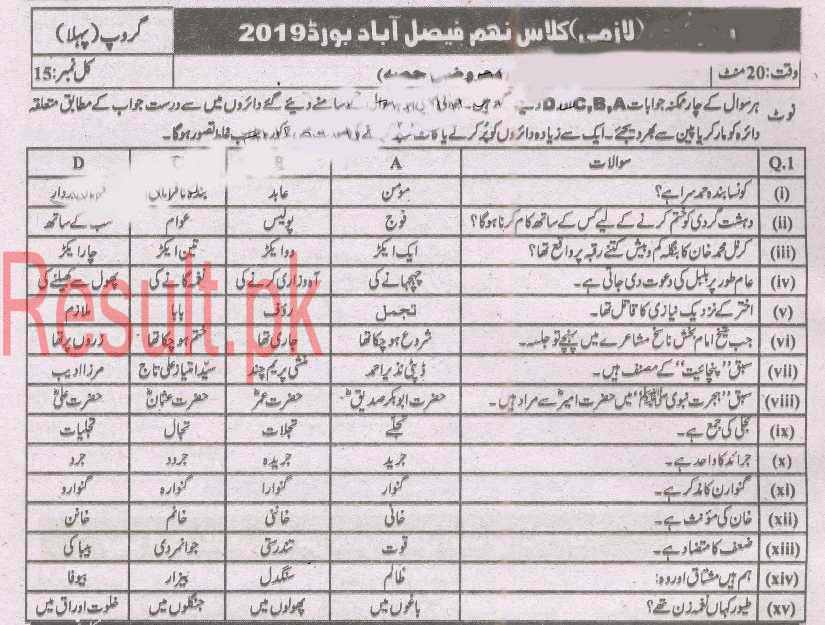 (لازمی) کلاس نہم فیصل آباد بورڈ 2019 گروپ (پہلا)
وقت: 20 منٹ کل نمبر: 15
نوٹ ہر سوال کے چار ممکنہ جوابات A,B,C سامنے دیئے گئے دائروں میں سے درست جواب کے مطابق متعلقہ
دائرہ کو مارکر یا پین سے بھر دیجئے۔ ایک سے زیادہ دائروں کو پُر کرنے یا کاٹ غلط تصور ہوگا۔
Q.1 سوالات A D
(i) کونسا بندہ حمد سرا ہے؟ مومن عابد
(ii) دہشت گردی کو ختم کرنے کے لیے کس کے ساتھ کام کرنا ہوگا؟ فوج پولیس عوام سب کے ساتھ
(iii) کرنل محمد خان کا بنگلہ کم و بیش کتنے رقبہ پر واقع تھا؟ ایک ایکڑ دو ایکڑ تین ایکڑ چار ایکڑ
(iv) عام طور پر بلبل کی دعوت دی جاتی ہے۔ چہچہانے کی آہ وزاری کرنے کی نغمہ گانے کی پھول سے کھیلنے کی
(v) اختر کے نزدیک نیازی کا قاتل تھا۔ تجمل رؤف بابا ملازم
(vi) جب شیخ امام بخش ناسخ مشاعرے میں پہنچے تو جلسہ۔ شروع ہو چکا تھا جاری تھا ختم ہو چکا تھا زوروں پر تھا
(vii) سبق "پنچائیت" کے مصنف ہیں۔ ڈپٹی نذیر احمد منشی پریم چند سیّد امتیاز علی تاج مرزا ادیب
(viii) سبق "ہجرت نبوی ﷺ" میں حضرت امیرؓ سے مراد ہیں۔ حضرت ابوبکر صدیقؓ حضرت عمرؓ حضرت عثمانؓ حضرت علیؓ
(ix) تجلی کی جمع ہے۔ تجلّے تجلات تجال تجلیات
(x) جرائد کا واحد ہے۔ جرید جریدہ جرود جرد
(xi) گنوارن کا مذکر ہے۔ گنوار گنوارا گنوارہ گنوارو
(xii) خان کی مؤنث ہے۔ خالی خانتی خانم خانن
(xiii) ضعف کا متضاد ہے۔ قوت تندرستی جوانمردی بیباکی
(xiv) ہم ہیں مشتاق اور وہ: ظالم سنگدل بیزار بیوفا
(xv) طیور کہاں نغمہ زن تھے؟ باغوں میں پھولوں میں جنگلوں میں خلوت اوراق میں
Result.pk